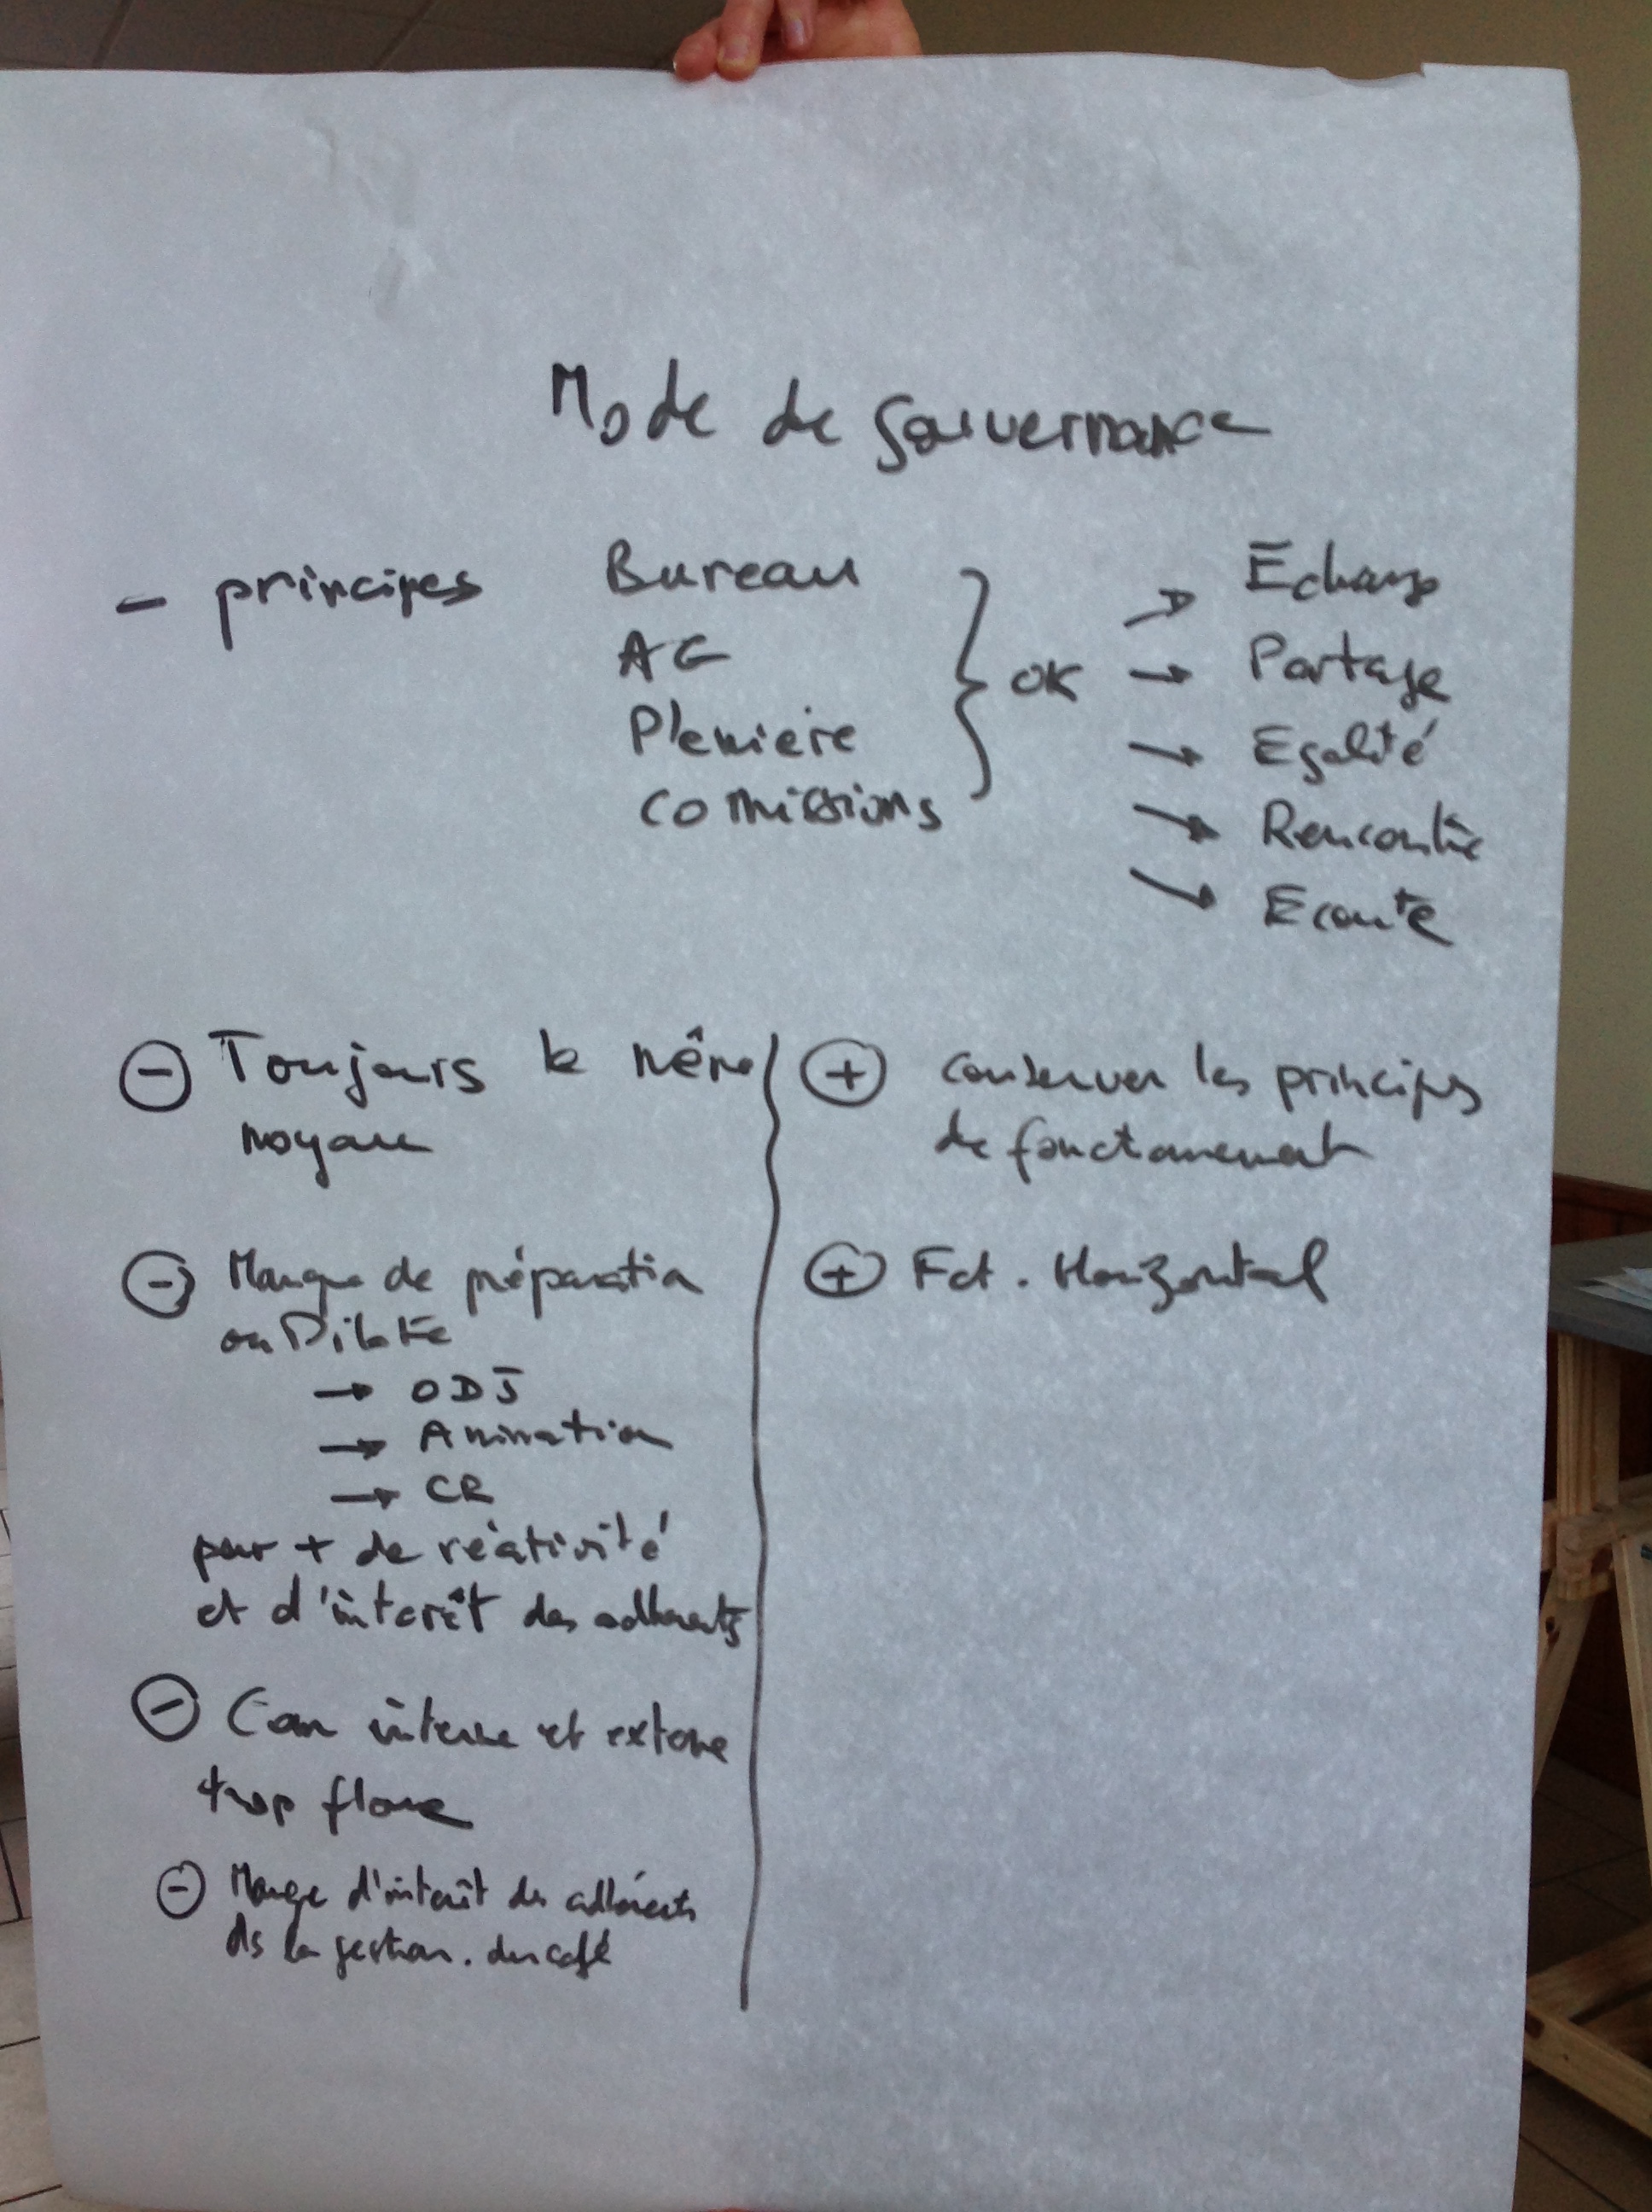 Mode de gouvernance
- principes
Bureau
AG
Plenière
Commissions
} OK
→ Echange
→ Partage
→ Egalité
→ Rencontre
→ Ecoute
⊖ Toujours le même
noyau
⊖ Manque de préparation
ou
→ ODJ
→ Animation
→ CR
pour + de réativité
et d'intérêt des adhérents
⊖ Com interne et externe
trop floue
⊖ Manque d'intérêt des adhérents
ds la gestion. du café
⊕ conserver les principes
de fonctionnement
⊕ Fct. Horizontal